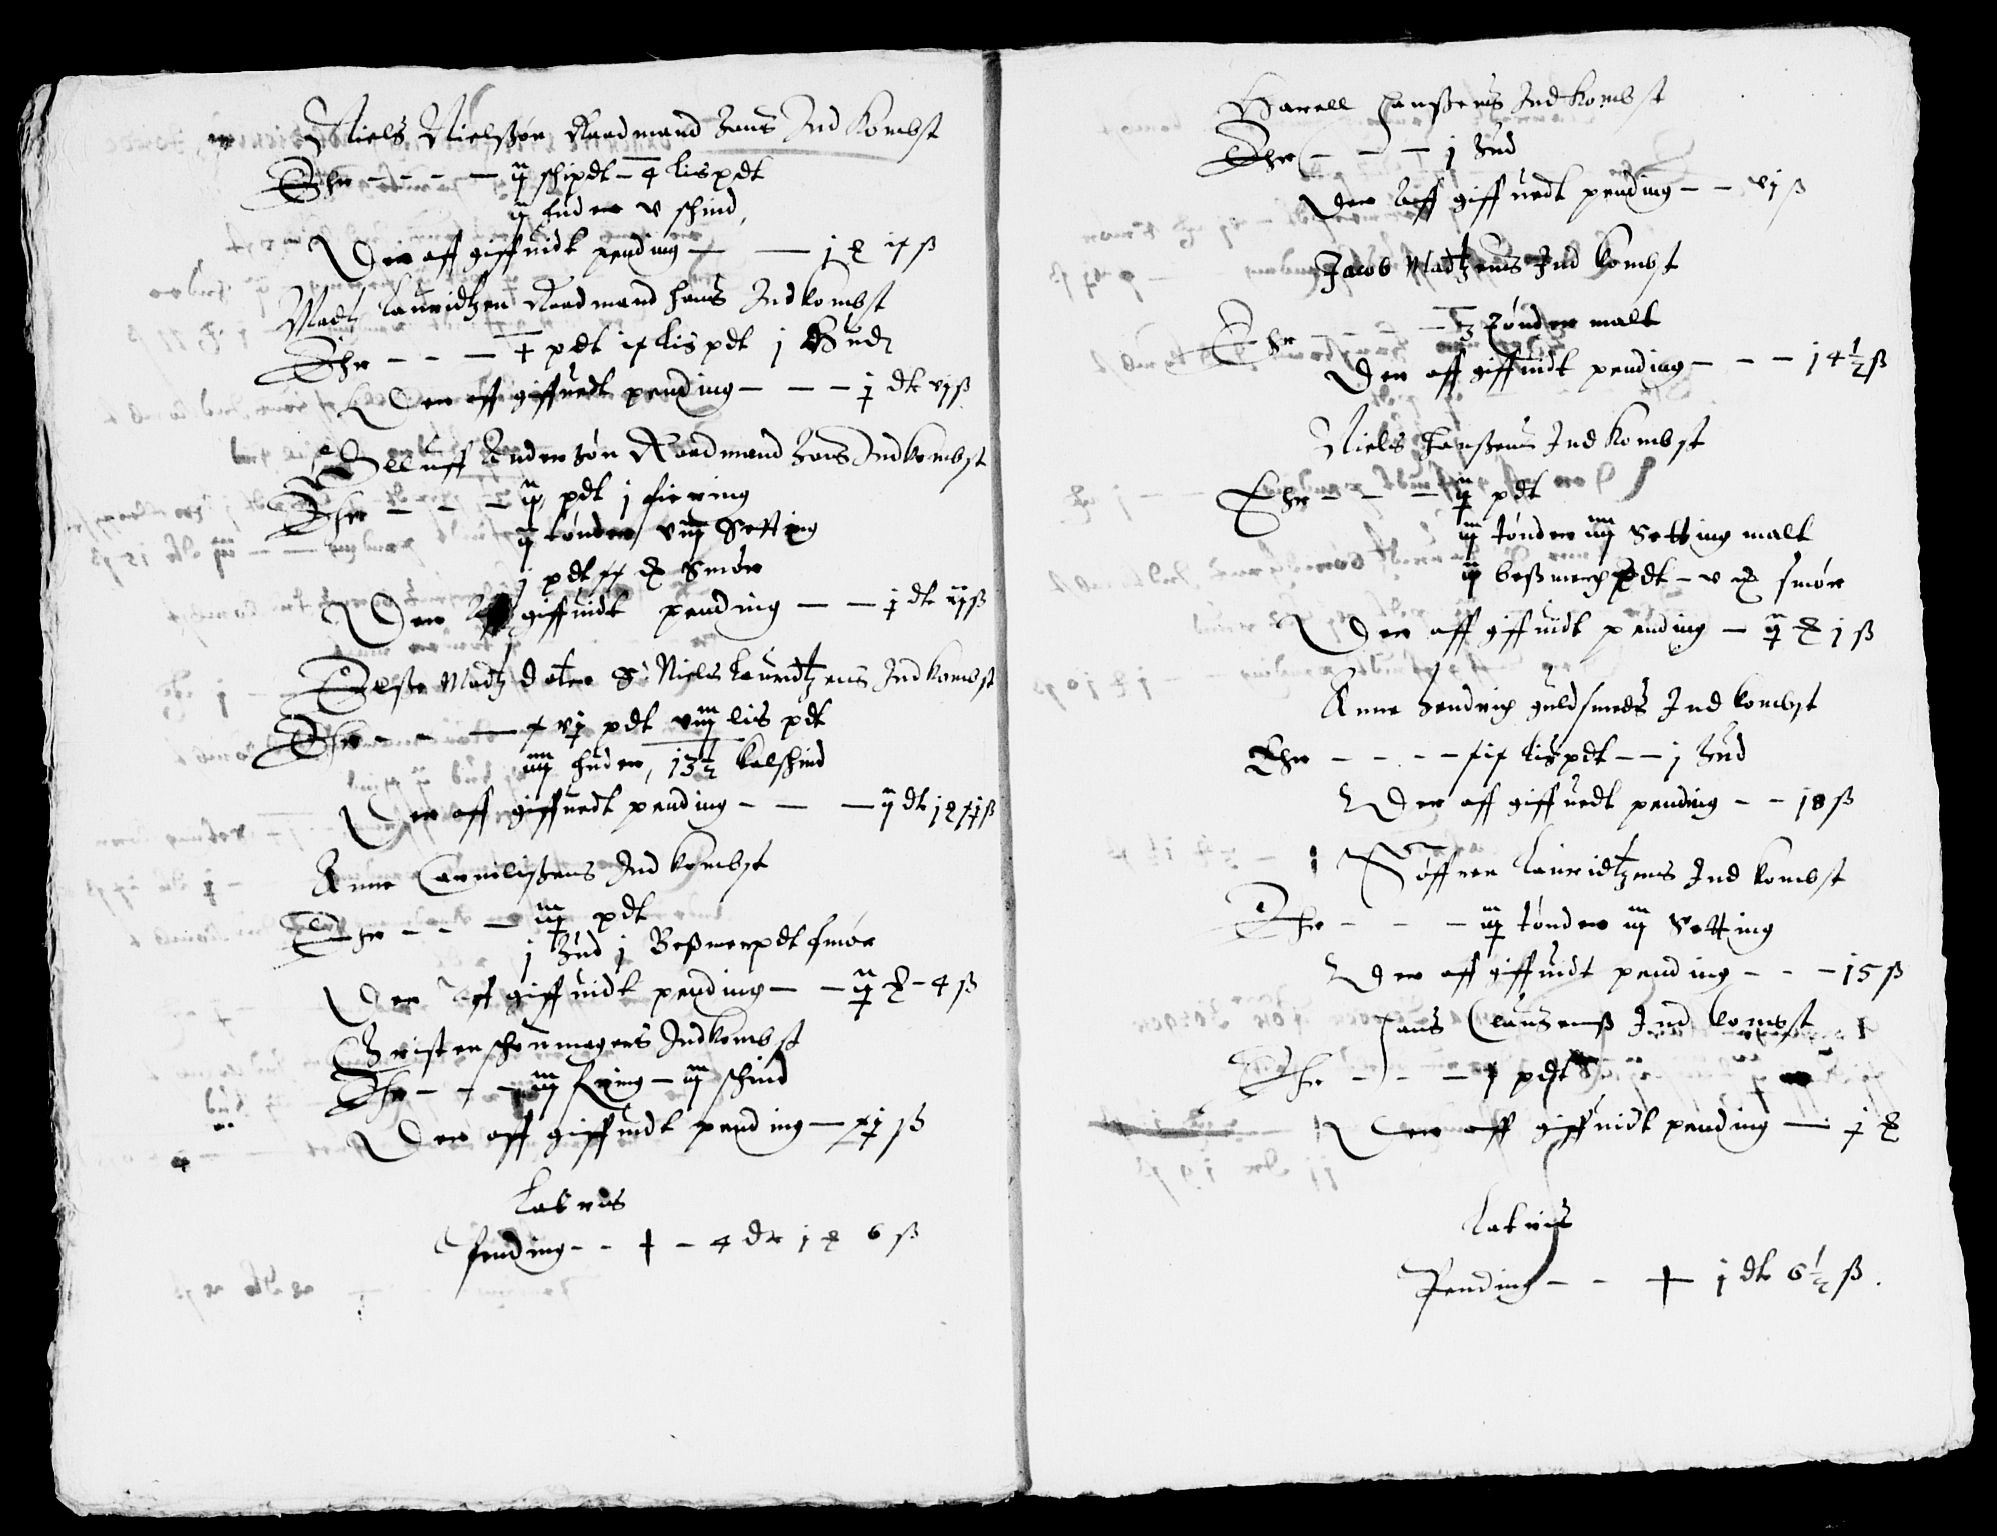 Niels Nielszøn Raadmand hans Indkombst
Ehr - - - - ij schipdt - 4 lispdt
ij huder v schind,
Der aff giffuidt pending - - j 
Madtz Lauridtzen Raadmand hans Indkombst
Ehr - - - + pdt lispdt j Hudt
Der aff giffuedt pending - - - j dlr vj ß
Oluff Anderszøn Raadmand hans Indkombst
Ehr - - - pdt j fiering
ij tønder viij Setting
j pdt Smør
Der aff giffuidt pending - - j dlr iij ß
Elsze Madtz dotter S. Niels Lauridtzens Indkombst
Ehr - - - vj pdt viij lispdt
iiij huder, 13½ kalskind
Der aff giffuedt pending - - - ij dlr
Anne Corniliszens Indkombst
Ehr - - - iij pdt
j Hud j Beszmerpdt smør
Der aff giffuidt pending - - ij - 4 ß
Christen schoumagers Indkombst
Ehr - - - iij - iij schind
Der aff giffuidt pending - xj ß
Lateris
Pending - - + - 4 dlr 1 6 ß
Hanszens Indkombst
Ehr - - - j Hud
Der aff giffuedt pending - - vj ß
Jacob Madtzens Indkombst
Ehr - - - - 3 Tønder malt
Der aff giffuidt pending - - - 14½ ß
Niels Hanszens Indkombst
Ehr - - - ij pdt
iij tønder iiij Setting malt
beszmerpdt - v smør
Der aff giffuidt pending - ij j ß
Anne Hendrich guldsmeds Indkombst
Ehr - - - - lispdt - - j Hud
Der aff giffuedt pending - - 18 ß
Søffren Lauridtzens Indkombst
Ehr - - - iij tønder iij Setting
Der aff giffuidt pending - - - 15 ß
Hans Clauszens Indkombst
Ehr - - - j pdt
Der aff giffuidt pending - j
Lateris
Pending - - + j dlr 6½ ß.